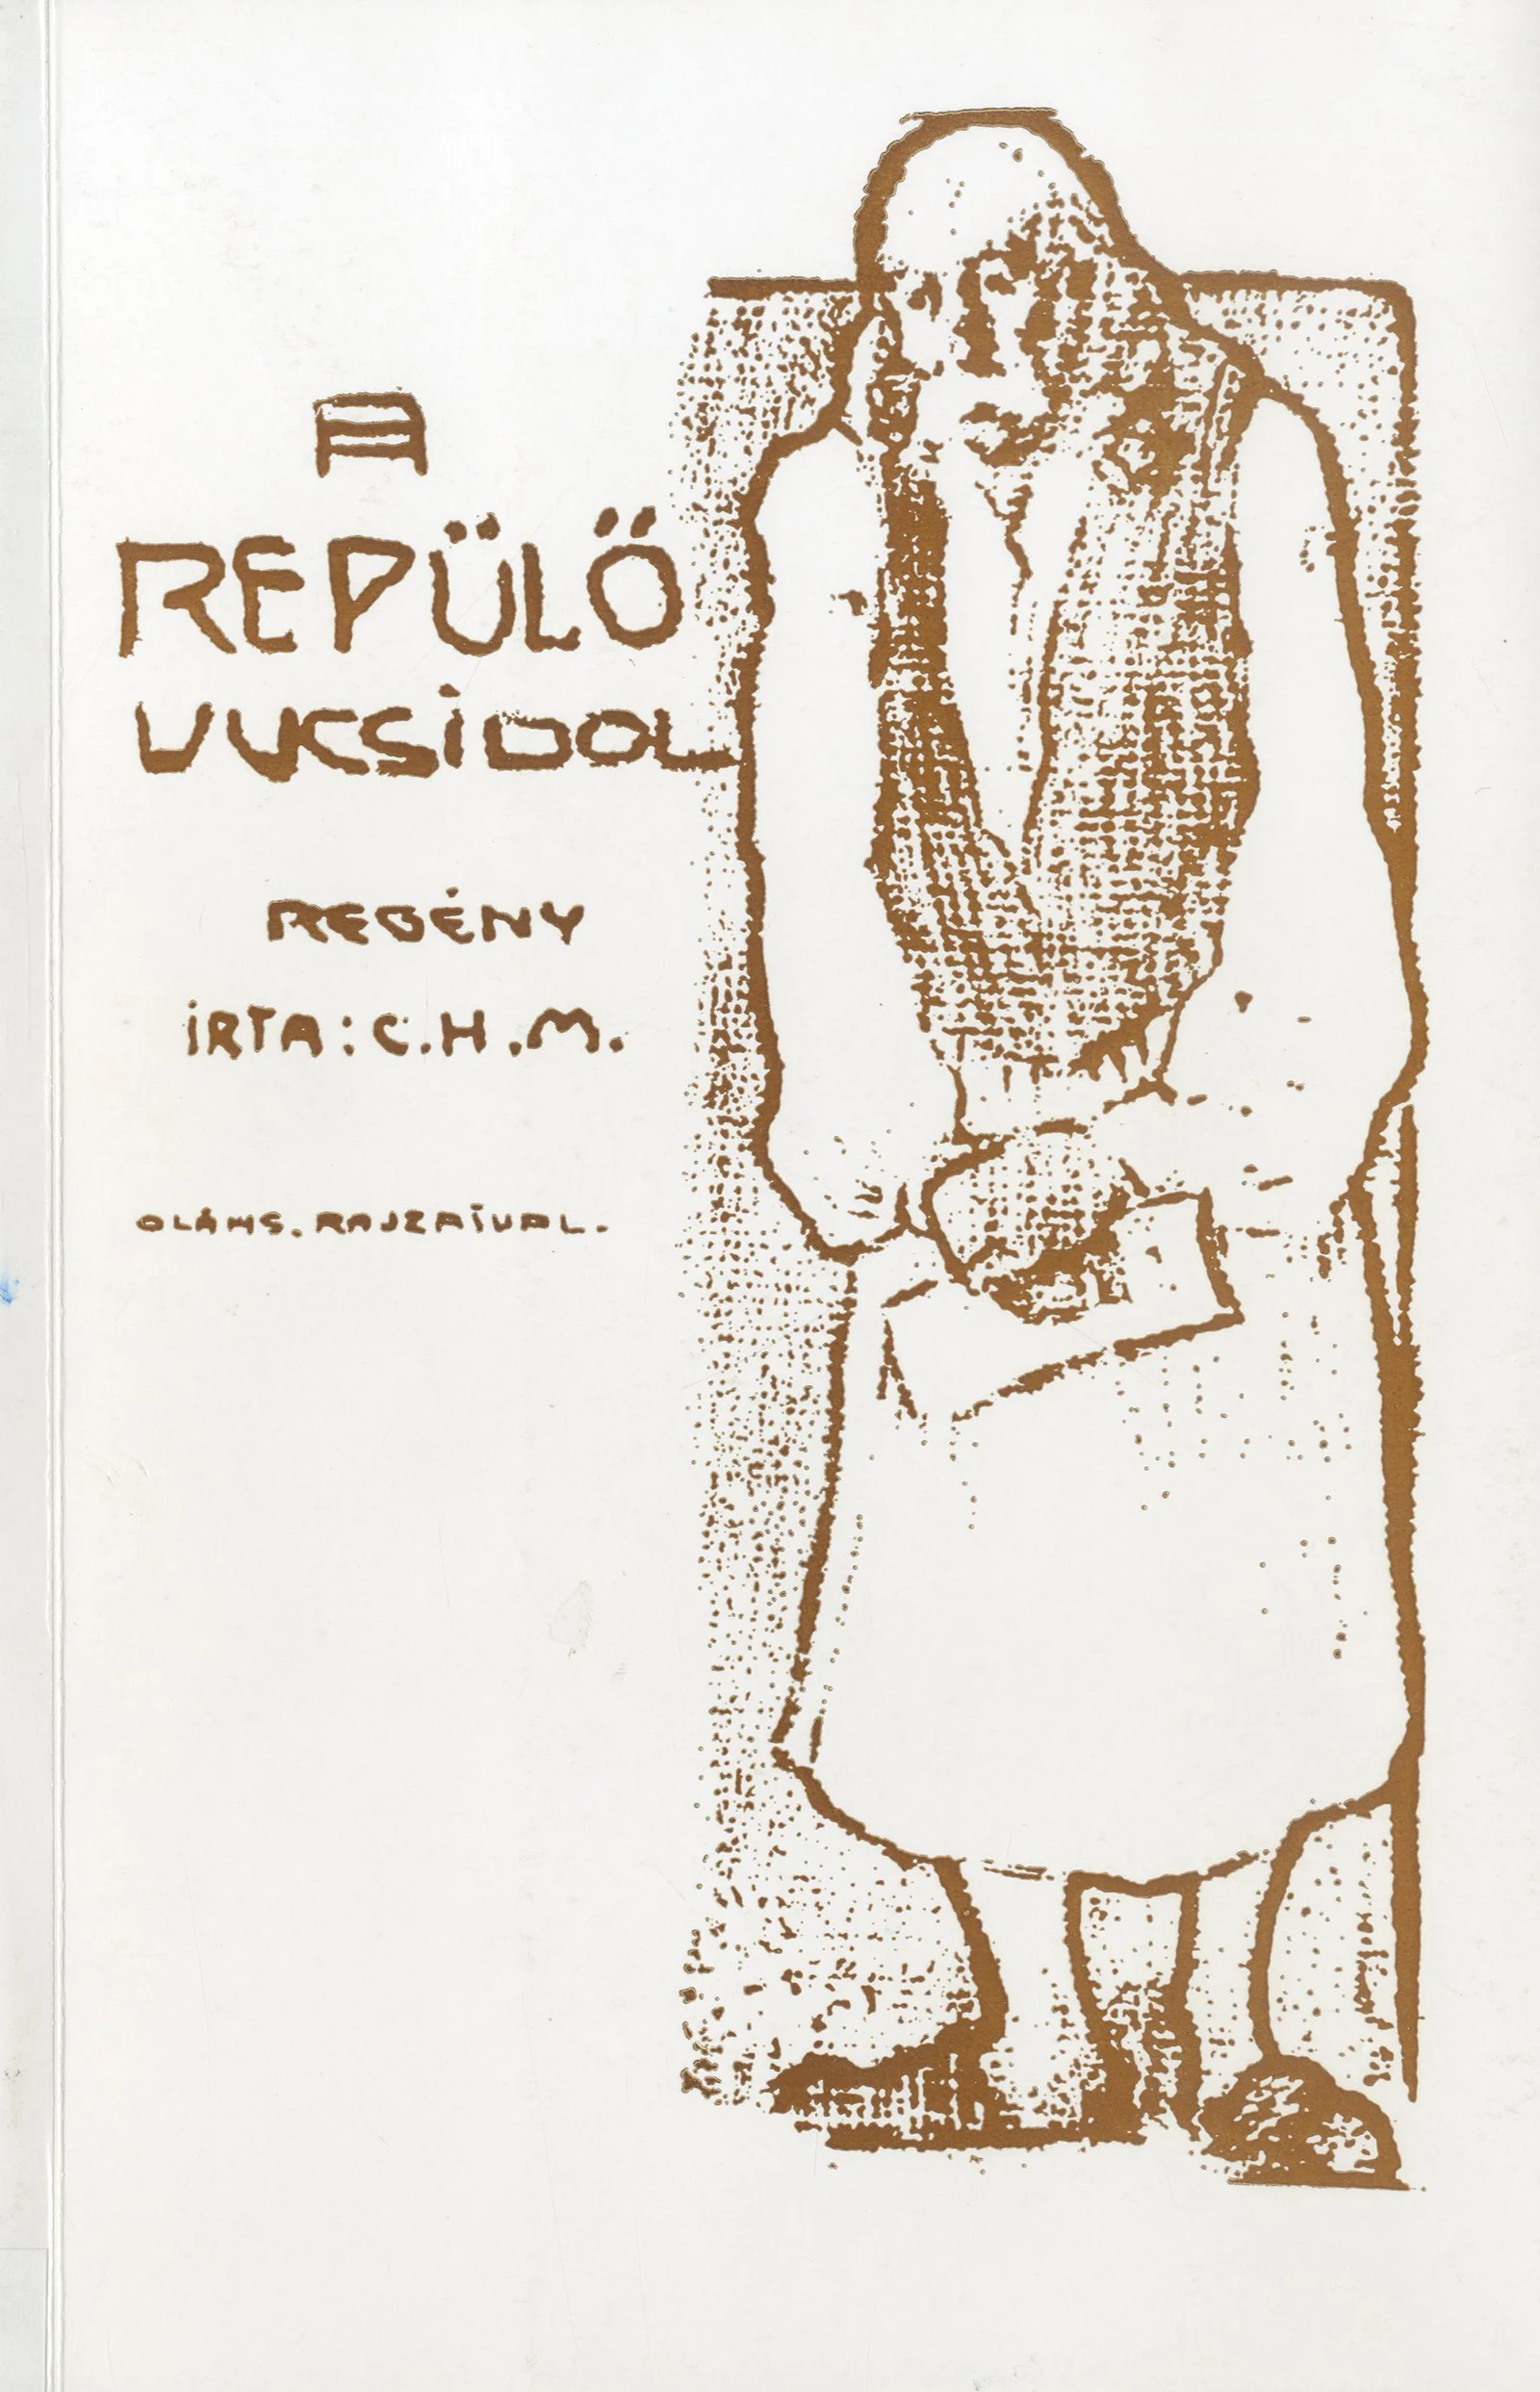 A
REPÜLŐ
VUCSIDOL
REGÉNY
ÍRTA: C.H.M.
OLÁHS. RAJZAIVAL.